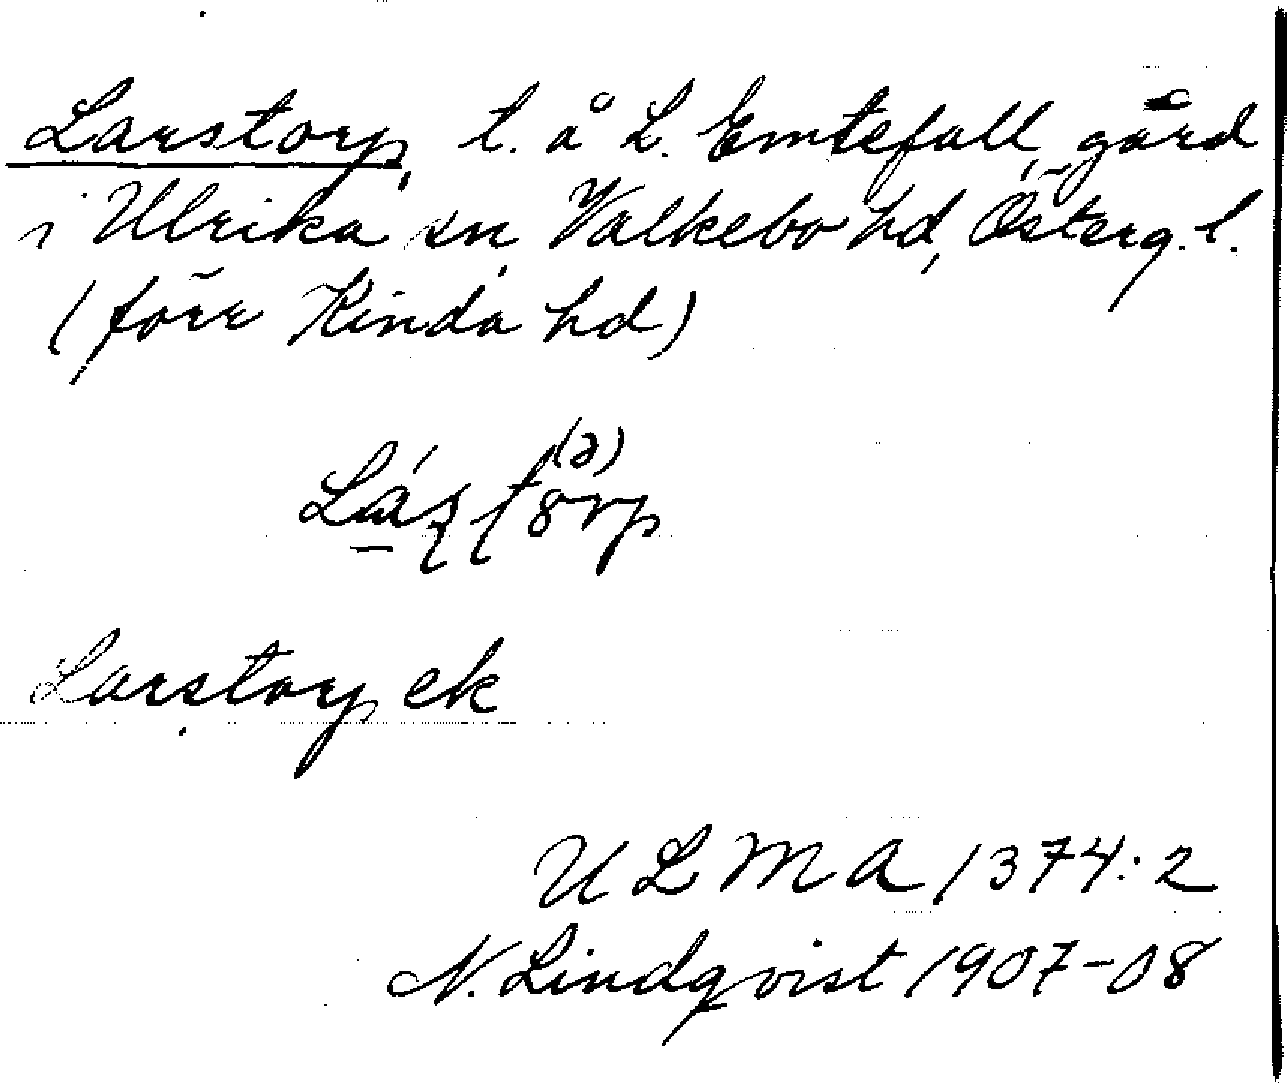 Larstorp, t. å L. Emtefall, gård
i Ulrika sn, Valkebo hd, Österg. l.
(förr Kinda hd)
(ə)
Larstorp ek
ULMA 1374:2
N. Lindqvist 1907-08